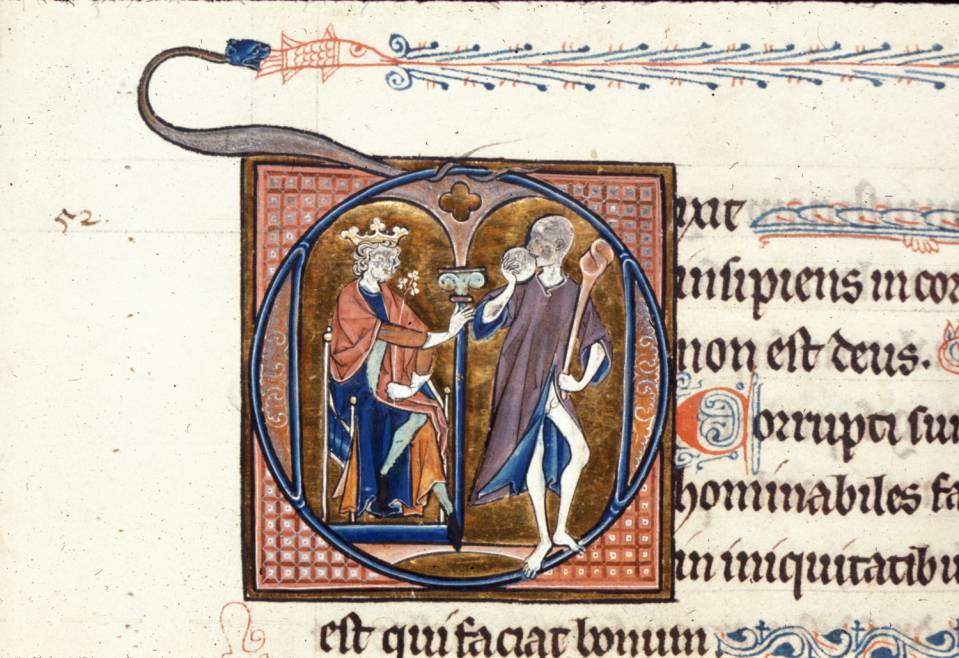 52.
ixit
insipiens in cor
non est deus.
Corrupti sun
hominabiles fa
in iniquitatibu
est qui faciat bonum